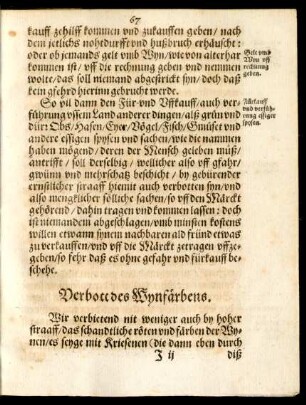 67
kauff gehilff kommen vnd zukauffen geben / nach
dem jetlichs nohtdurfft vnd hußbruch erhäuscht:
oder ob jemands gelt vmb Wyn / wie von alterhar
kommen ist / vff die rechnung geben vnd nemmen
wolte / das soll niemand abgestrickt syn / doch daß
kein gfehrd hierinn gebrucht werde.
Gelt vmb
Wyn vff
rechnung
geben.
So vil dann den Für- vnd Vffkauff / auch ver-
führung vssem Land anderer dingen / alß grün vnd
dürꝛ Obs / Hasen / Eyer / Vögel / Fisch / Gmüset vnd
andere essigen spysen vnd sachen / wie die nammen
haben mögend / deren der Mensch geleben muß /
antrifft / soll derselbig / wellicher also vff gfahr /
gwünn vnd mehrschatz beschicht / by gebürender
ernstlicher straaff hiemit auch verbotten syn / vnd
also mengklicher solliche sachen / so vff den Märckt
gehörend / dahin tragen vnd kommen lassen: doch
ist niemandem abgeschlagen / vmb minsten kostens
willen etwann synem nachbaren ald fründ etwas
zu verkauffen / vnd vff die Märckt zetragen vffze-
geben / so fehr daß es ohne gefahr vnd fürkauff be-
schehe.
Fürkauff
vnd verfüh-
rung essiger
spysen.
Verbott des Wynfärbens.
Wir verbietend nit weniger auch by hoher
straaff / das schandtliche röten vnd färben der Wy-
nen / es seyge mit Kriesenen (die dann eben durch
J ij
diß